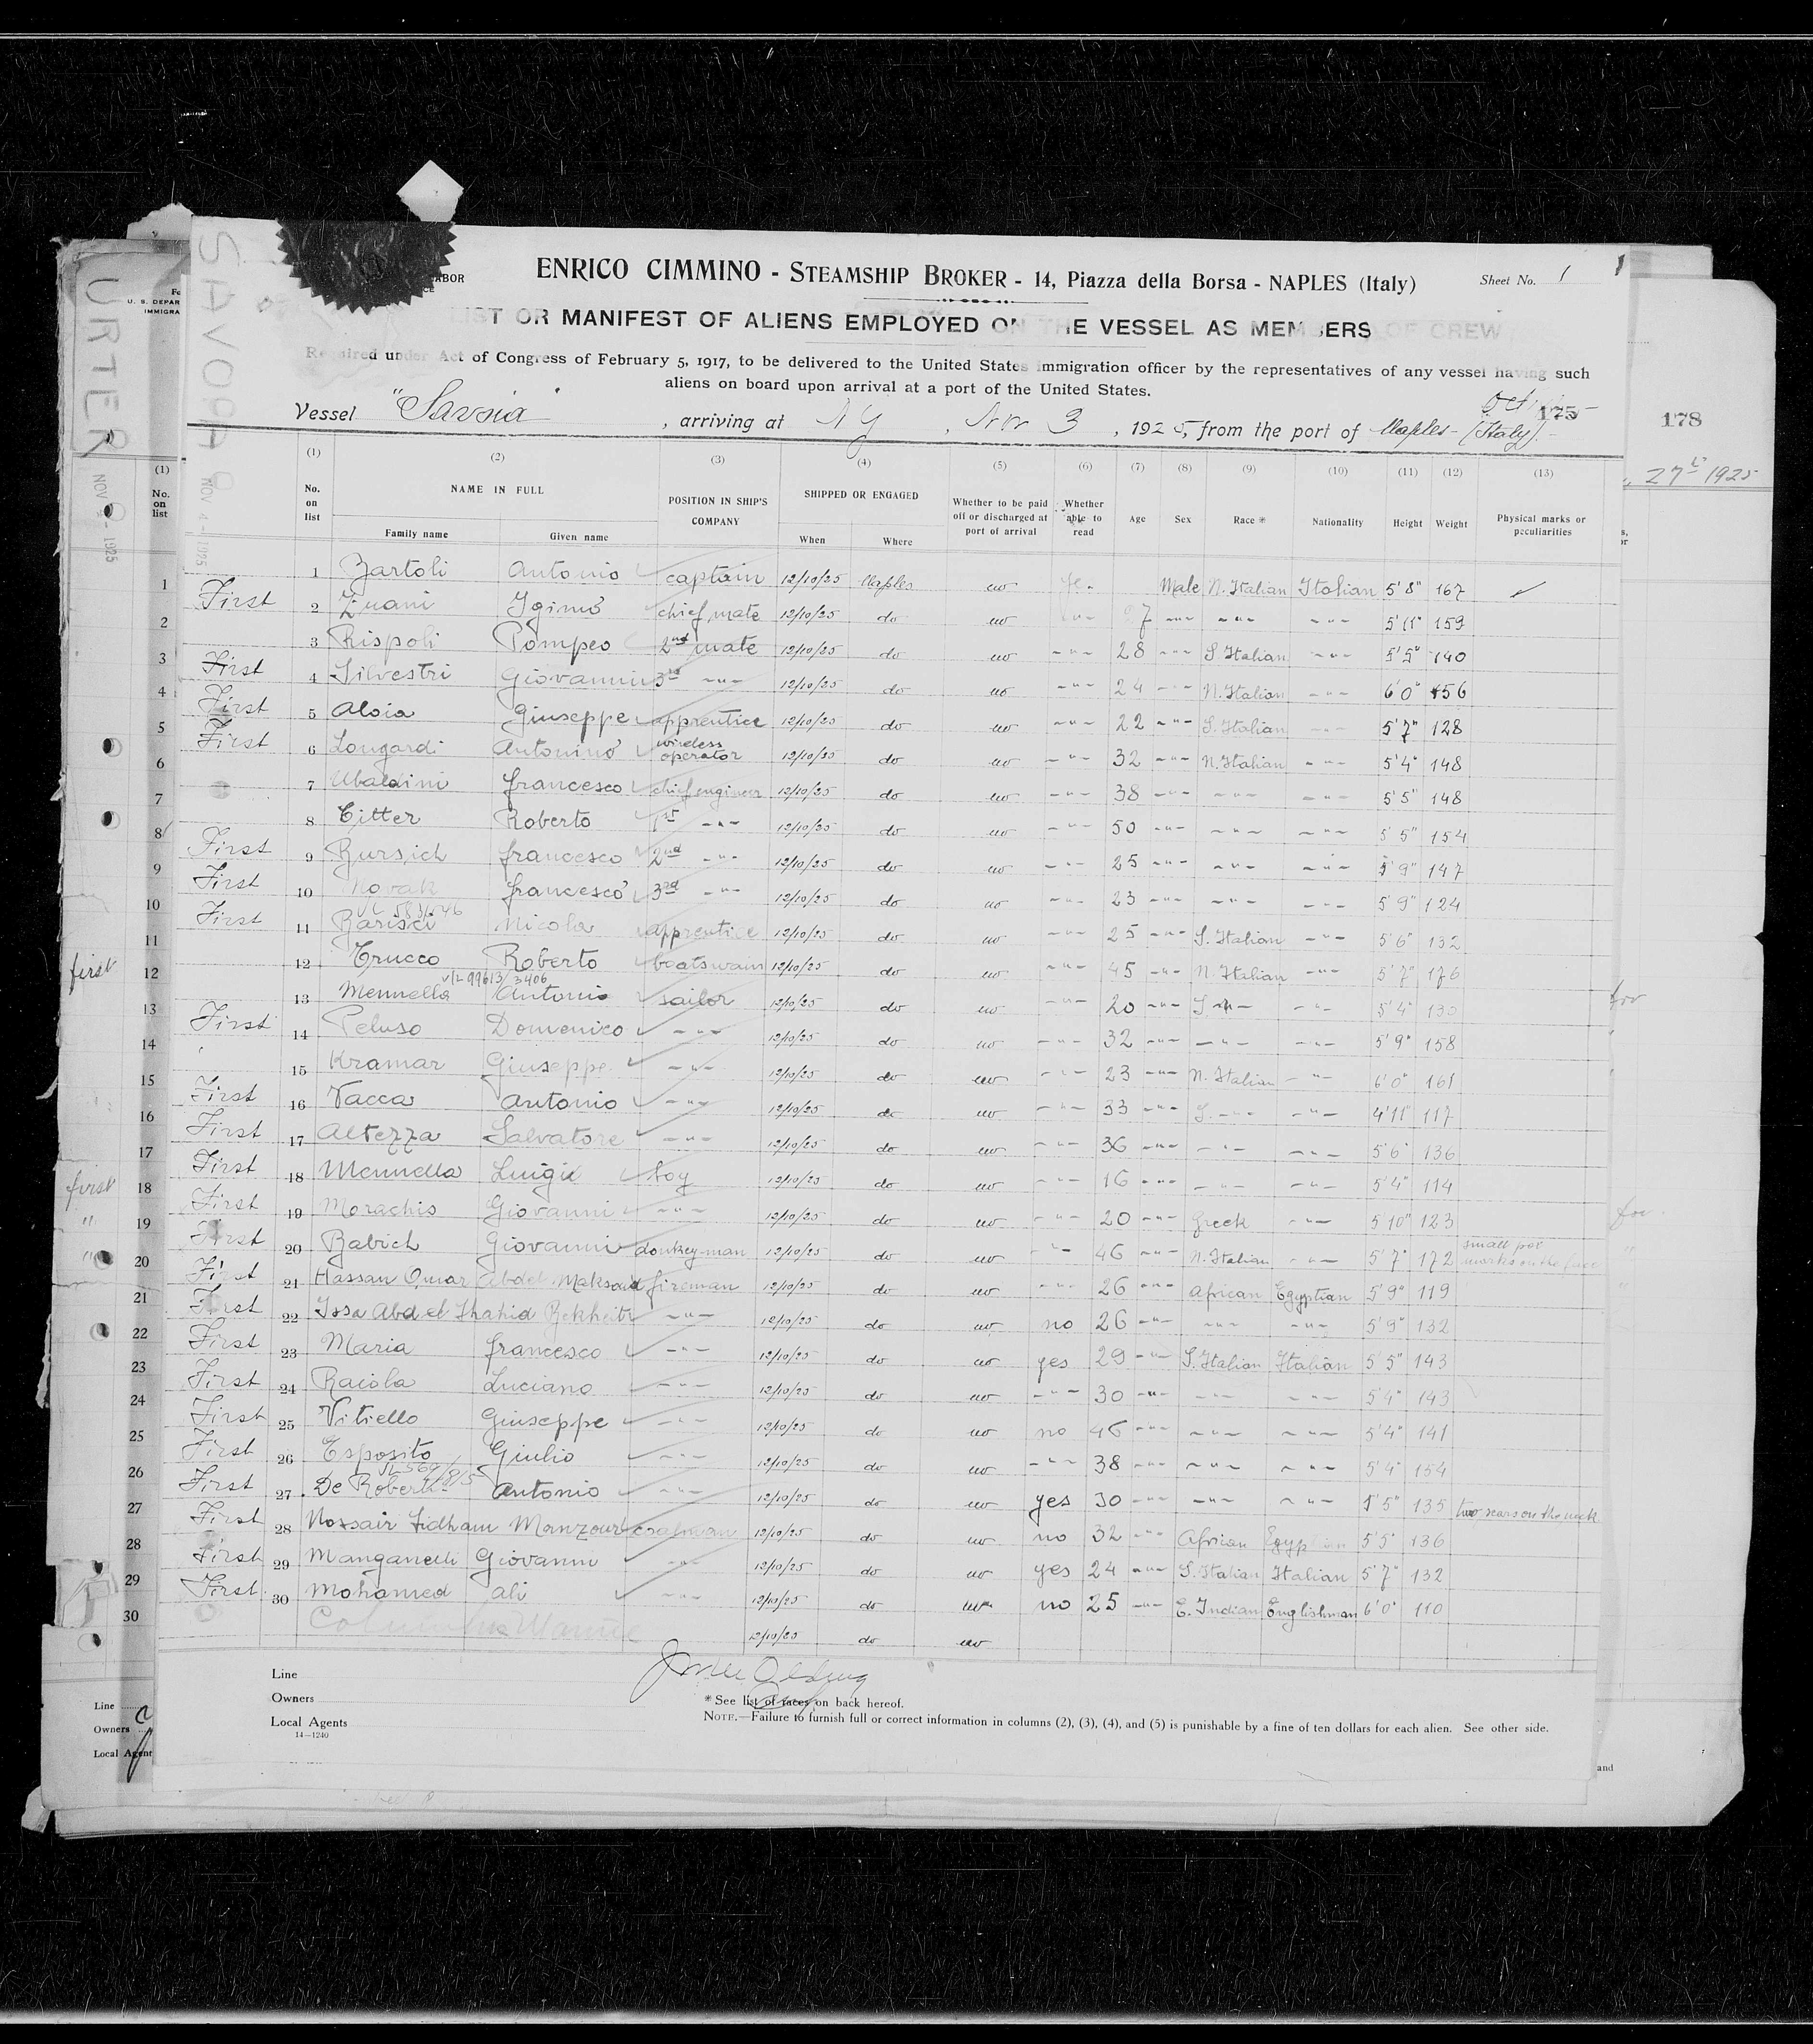 ENRICO CIMMINO - STEAMSHIP BROKER - 14, Piazza della Borsa - NAPLES (Italy)
Sheet No. 1
LIST OR MANIFEST OF ALIENS EMPLOYED ON THE VESSEL AS MEMBERS OF CREW
Required under Act of Congress of February 5, 1917, to be delivered to the United States immigration officer by the representatives of any vessel having such
aliens on board upon arrival at a port of the United States.
175
178
Vessel "Savoia", arriving at NY, Nov 3, 1925, from the port of Naples - (Italy).
27th 1925
SAVOIA
URTER
NOV 4 - 1925
(1) (2) (3) (4) (5) (6) (7) (8) (9) (10) (11) (12) (13)
No. on list
NAME IN FULL
Family name
Given name
POSITION IN SHIP'S COMPANY
SHIPPED OR ENGAGED
When
Where
Whether to be paid off or discharged at port of arrival
Whether able to read
Age
Sex
Race *
Nationality
Height
Weight
Physical marks or peculiarities
1 Bartoli Antonio captain 12/10/25 Naples no Male N. Italian Italian 5'8" 167
First 2 Zuani Igino chief mate 12/10/25 do no -"- -"- -"- 5'11" 159
3 Rispoli Pompeo 2nd mate 12/10/25 do no -"- 28 -"- S. Italian -"- 5'5" 140
First 4 Silvestri Giovanni 3rd -"- 12/10/25 do no -"- 24 -"- N. Italian -"- 6'0" 156
First 5 Aloia Giuseppe apprentice 12/10/25 do no -"- 22 -"- S. Italian -"- 5'7" 128
First 6 Longardi Antonino wireless operator 12/10/25 do no -"- 32 -"- N. Italian -"- 5'4" 148
7 Ubaldini francesco chief engineer 12/10/25 do no -"- 38 -"- -"- -"- 5'5" 148
8 Citter Roberto 1st -"- 12/10/25 do no -"- 50 -"- -"- -"- 5'5" 154
First 9 Bursich francesco 2nd -"- 12/10/25 do no -"- 25 -"- -"- -"- 5'9" 147
First 10 Novak francesco 3rd -"- 12/10/25 do no -"- 23 -"- -"- -"- 5'9" 124
First 11 Barisci Nicola apprentice 12/10/25 do no -"- 25 -"- S. Italian -"- 5'6" 132
12 Trucco Roberto boatswain 12/10/25 do no -"- 45 -"- N. Italian -"- 5'7" 176
v/L 99613/3406
13 Mennella Antonio sailor 12/10/25 do no -"- 20 -"- S. -"- -"- 5'4"
First 14 Peluso Domenico -"- 12/10/25 do no -"- 32 -"- -"- -"- 5'9" 158
15 Kramar Giuseppe -"- 12/10/25 do no -"- 23 -"- N. Italian -"- 6'0" 161
First 16 Vacca Antonio -"- 12/10/25 do no -"- 33 -"- S. -"- -"- 4'11" 117
First 17 Altezza Salvatore -"- 12/10/25 do no -"- 36 -"- -"- -"- 5'6" 136
First 18 Mennella Luigi boy 12/10/25 do no -"- 16 -"- -"- -"- 5'4" 114
First 19 Morachis Giovanni -"- 12/10/25 do no -"- 20 -"- Greek -"- 5'10" 123
First 20 Babich Giovanni donkey-man 12/10/25 do no -"- 46 -"- N. Italian -"- 5'7" 172 small pox marks on the face
First 21 Hassan Omar Abdel Maksoud fireman 12/10/25 do no -"- 26 -"- African Egyptian 5'9" 119
First 22 Issa Abd el Shahid Bekheit -"- 12/10/25 do no no 26 -"- -"- -"- 5'9" 132
First 23 Maria francesco -"- 12/10/25 do no yes 29 -"- S. Italian Italian 5'5" 143
First 24 Raiola Luciano -"- 12/10/25 do no -"- 30 -"- -"- -"- 5'4" 143
First 25 Vitiello Giuseppe -"- 12/10/25 do no no 46 -"- -"- -"- 5'4" 141
First 26 Esposito Giulio -"- 12/10/25 do no -"- 38 -"- -"- -"- 5'4" 154
First 27 De Roberti Antonio -"- 12/10/25 do no yes 30 -"- -"- -"- 5'5" 135 two scars on the neck
First 28 Nossair Manzour coalman 12/10/25 do no no 32 -"- African Egyptian 5'5" 136
First 29 Manganelli Giovanni -"- 12/10/25 do no yes 24 -"- S. Italian Italian 5'7" 132
First 30 Mohamed ali -"- 12/10/25 do no no 25 -"- E. Indian Englishman 6'0" 110
12/10/25 do no
Line
Owners
Local Agents
14—1240
* See list of races on back hereof.
NOTE.—Failure to furnish full or correct information in columns (2), (3), (4), and (5) is punishable by a fine of ten dollars for each alien. See other side.